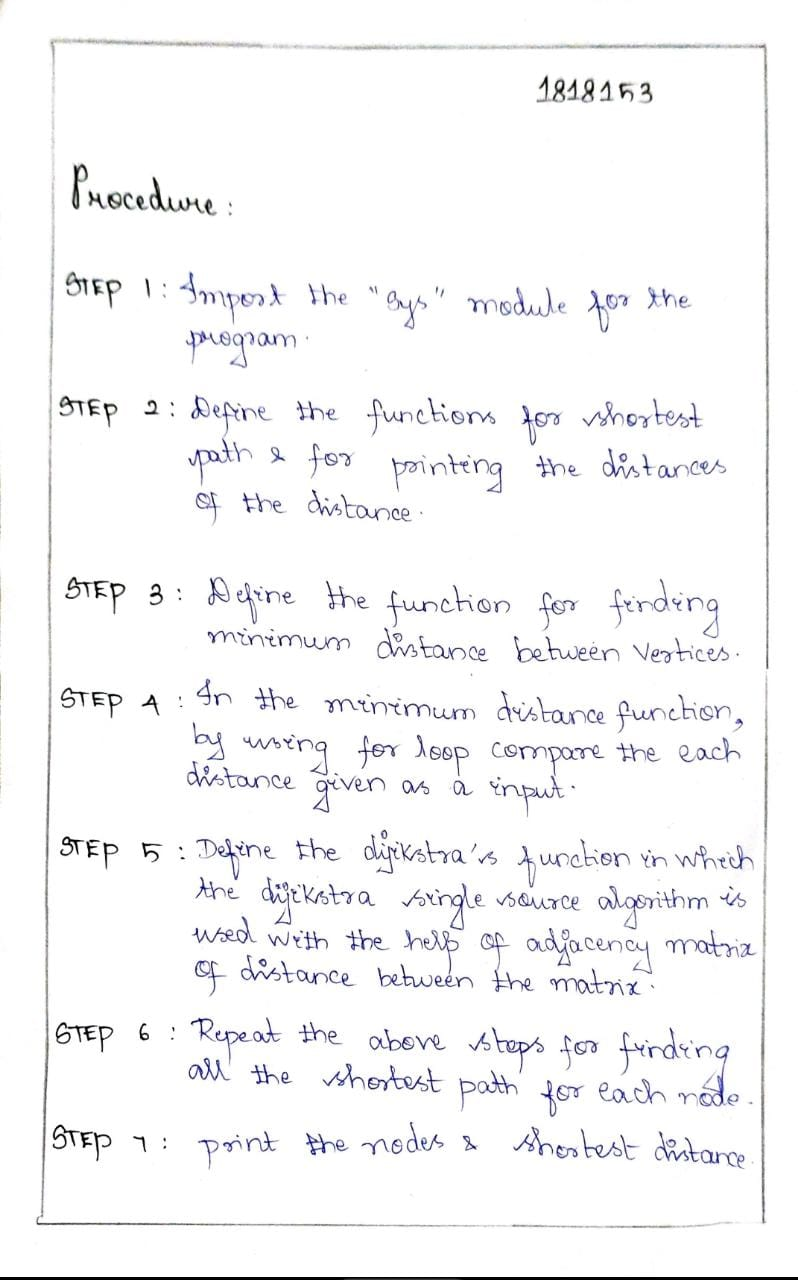 1818153
Procedure:
STEP 1: Import the "sys" module for the
program.
STEP 2: Define the functions for shortest
path & for printing the distances
of the distance.
STEP 3: Define the function for finding
minimum distance between vertices.
STEP 4: In the minimum distance function,
by using for loop compare the each
distance given as a input.
STEP 5: Define the dijikstra's function in which
the dijikstra single source algorithm is
used with the help of adjacency matrix
of distance between the matrix.
STEP 6: Repeat the above steps for finding
all the shortest path for each node.
STEP 7: print the nodes & shortest distance.